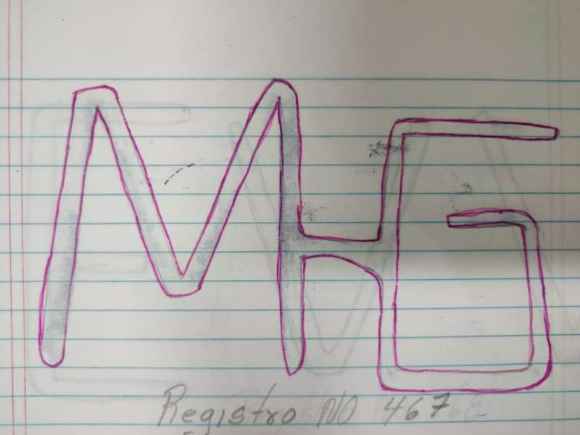 MHG
Registro NO 467